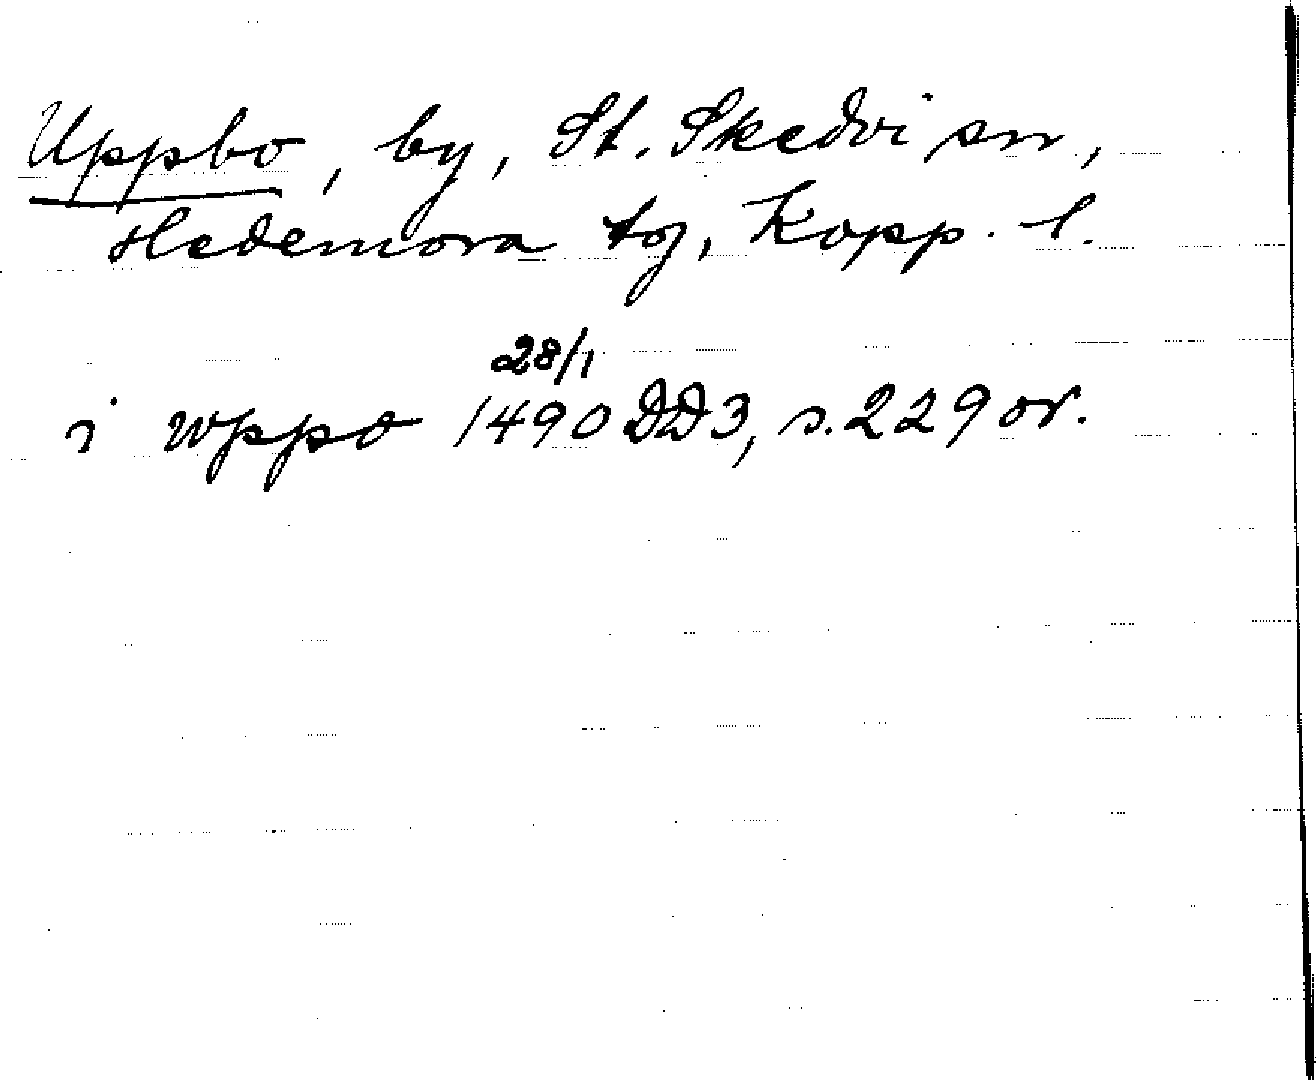 Uppbo, by, St. Skedvi sn,
Hedemora tg, Kopp. l.
28/1
i wppo 1490 DD3, s. 229 or.